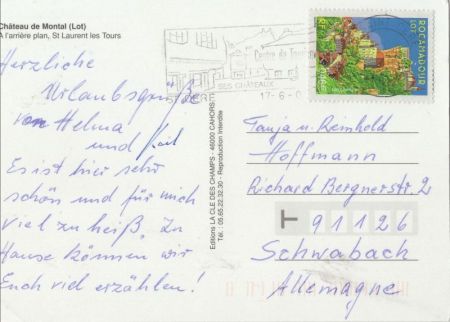 Château de Montal (Lot)
A l'arrière plan, St Laurent les Tours
Herzliche
Urlaubsgrüße
von Helma
und Karl
Es ist hier sehr
schön und für mich
viel zu heiß. Zu
Hause können wir
Euch viel erzählen!
Editions LA CLE DES CHAMPS - 46000 CAHORS
Tél. 05.65.22.32.30 - Reproduction Interdite
SES CHÂTEAUX
17-6-0
ROCAMADOUR
LOT
Tanja u. Reinhold
Hoffmann
Richard Bergnerstr. 2
T 91126
Schwabach
Allemagne